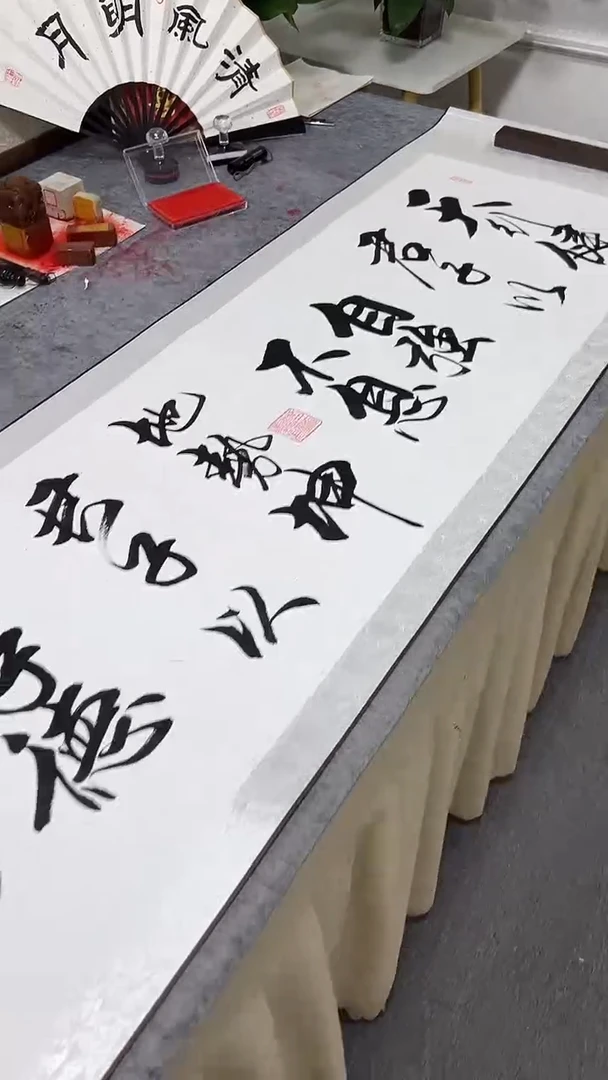 清風明月
天行健
君子以
自强
不息
地勢坤
君子
以
德